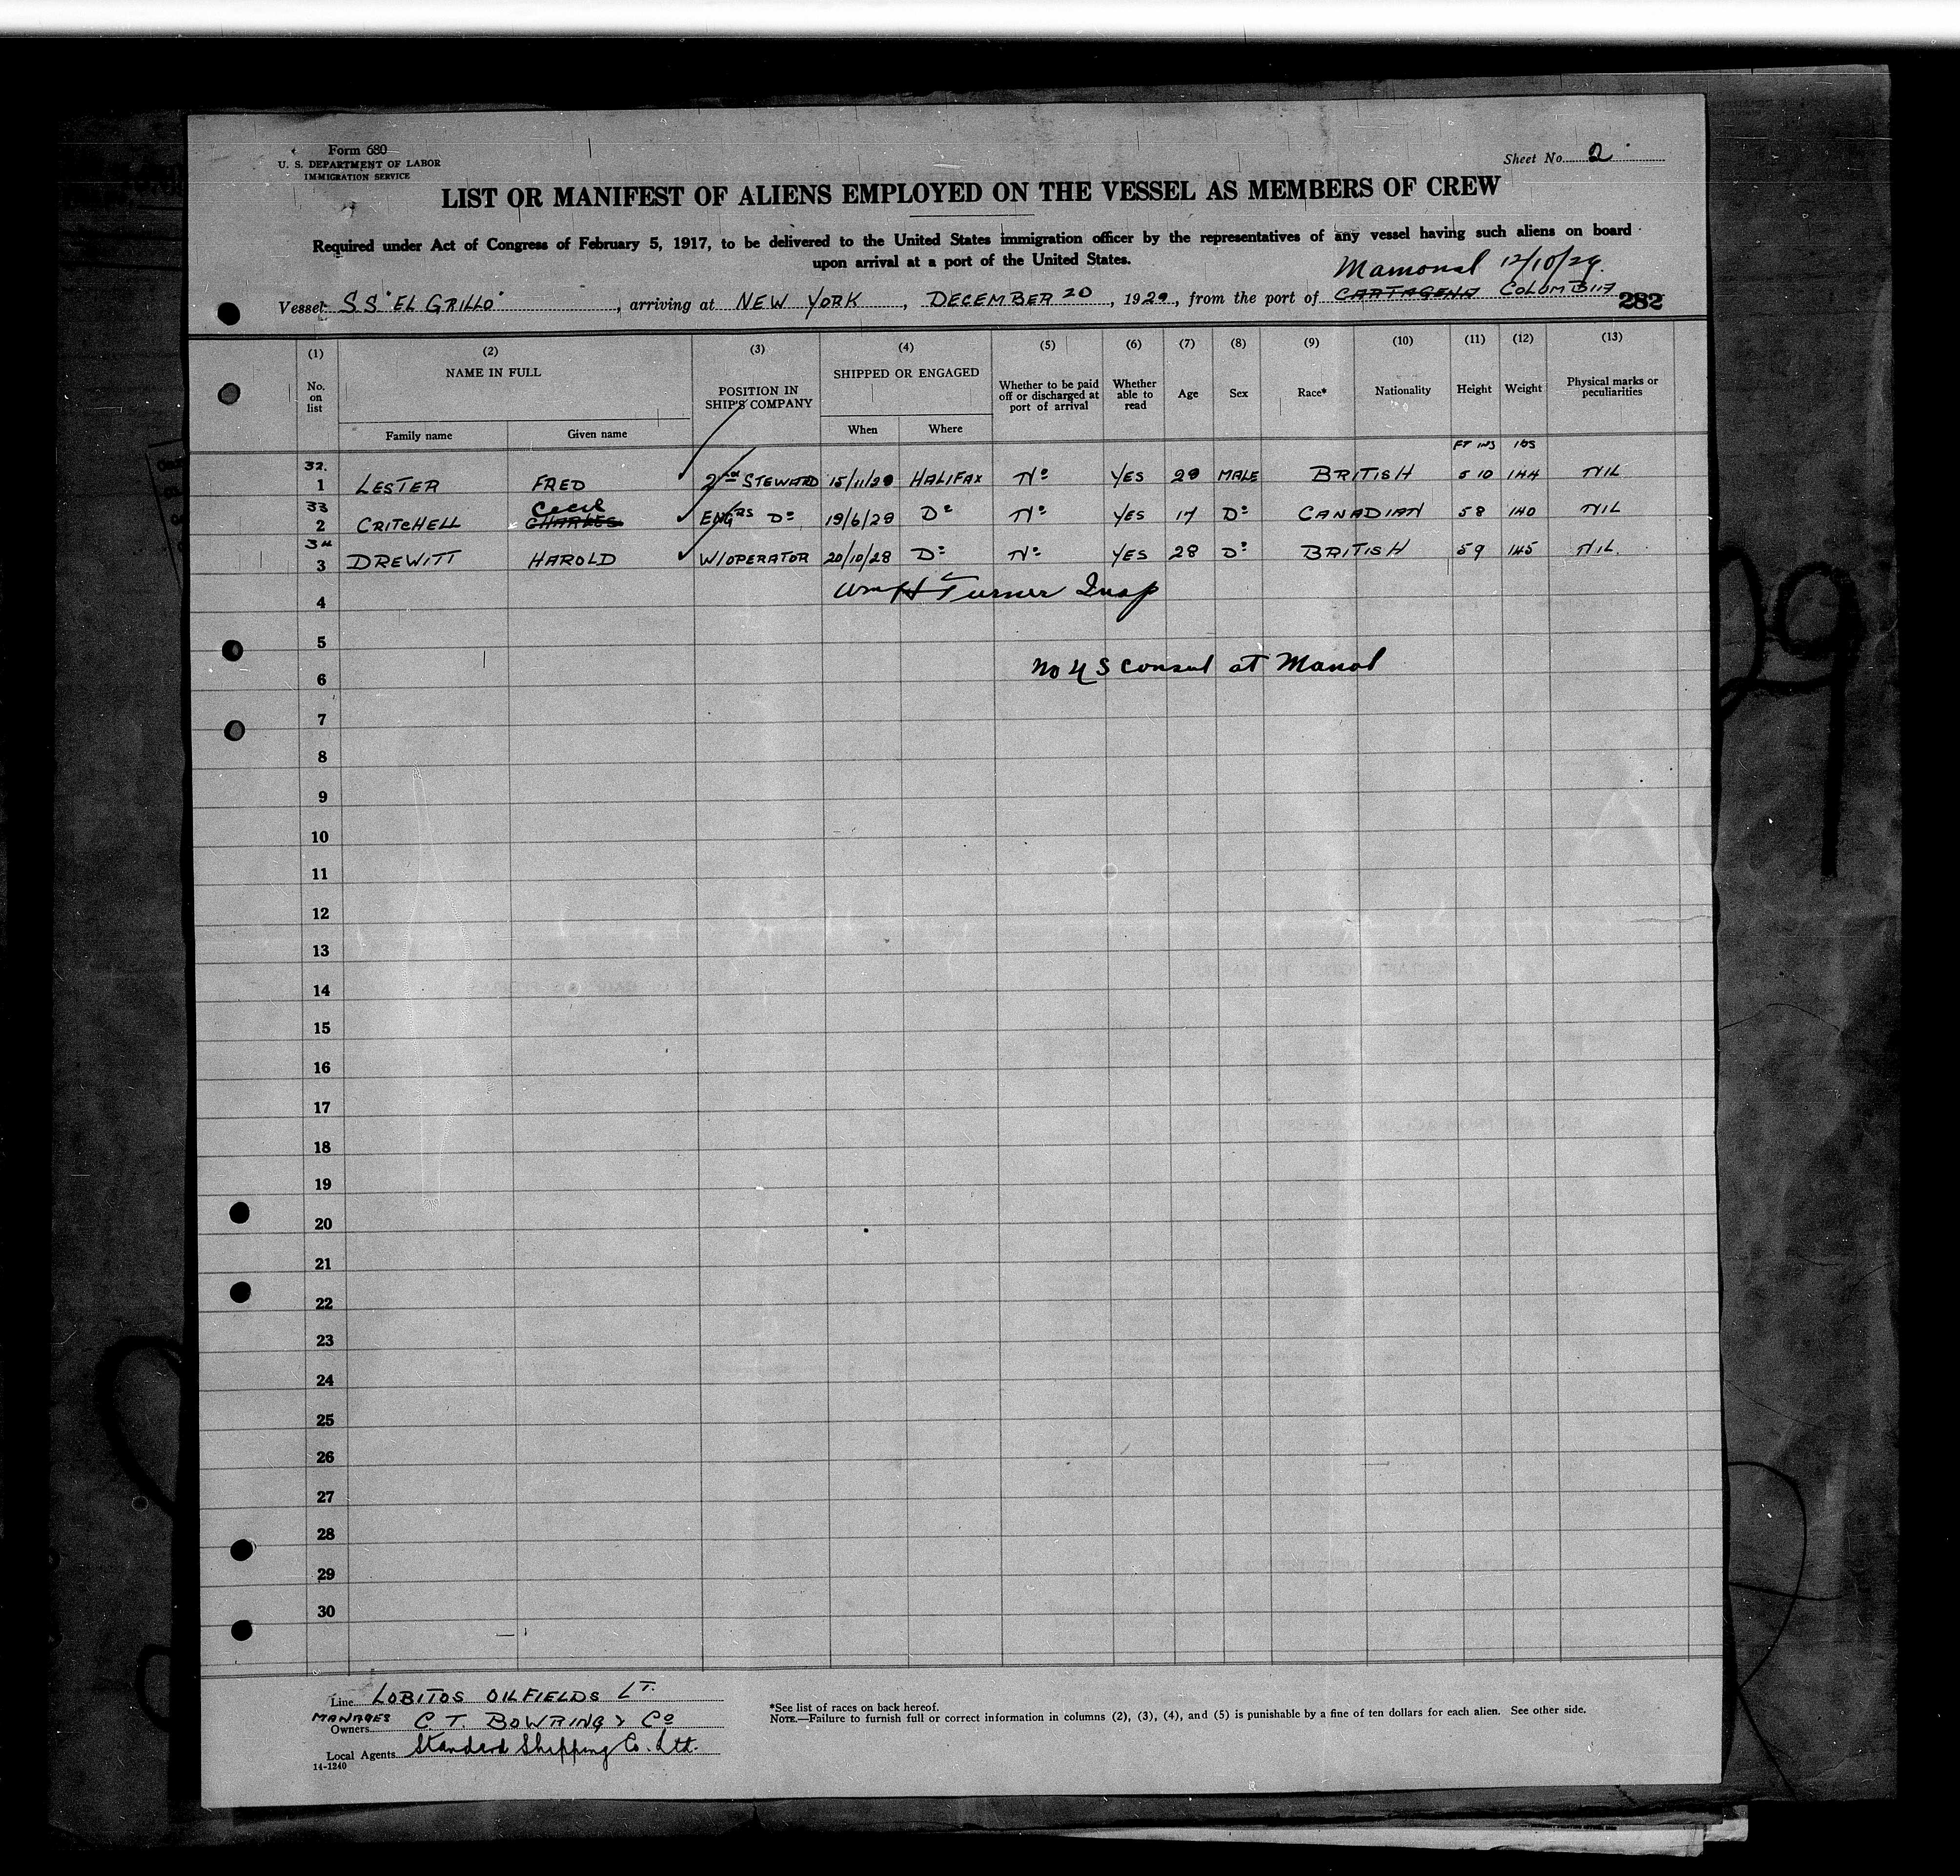 Form 680
U. S. DEPARTMENT OF LABOR
IMMIGRATION SERVICE
Sheet No. 2
LIST OR MANIFEST OF ALIENS EMPLOYED ON THE VESSEL AS MEMBERS OF CREW
Required under Act of Congress of February 5, 1917, to be delivered to the United States immigration officer by the representatives of any vessel having such aliens on board
upon arrival at a port of the United States.
Mamonal 12/10/29.
Vessel S.S "EL GRILLO", arriving at NEW YORK, DECEMBER 20, 1929, from the port of CARTAGENA COLUMBIA 282
(1) (2) (3) (4) (5) (6) (7) (8) (9) (10) (11) (12) (13)
No. on list NAME IN FULL POSITION IN SHIP'S COMPANY SHIPPED OR ENGAGED Whether to be paid off or discharged at port of arrival Whether able to read Age Sex Race* Nationality Height Weight Physical marks or peculiarities
Family name Given name When Where
FT INS lbs
32.
1 LESTER FRED 2nd STEWARD 15/11/29 HALIFAX No YES 29 MALE BRITISH 5 10 144 NIL
33 Cecil
2 CRITCHELL CHARLES ENGRS Do 19/6/29 Do No YES 17 Do CANADIAN 5 8 140 NIL
34
3 DREWITT HAROLD W/OPERATOR 20/10/28 Do No YES 28 Do BRITISH 5 9 145 NIL.
4 Wm H Turner Insp
5
6 No U S Consul at Manol
7
8
9
10
11
12
13
14
15
16
17
18
19
20
21
22
23
24
25
26
27
28
29
30
Line LOBITOS OILFIELDS LT.
MANAGES
Owners C T. BOWRING & Co
Local Agents Standard Shipping Co. Ltd.
14-1240
*See list of races on back hereof.
NOTE.—Failure to furnish full or correct information in columns (2), (3), (4), and (5) is punishable by a fine of ten dollars for each alien. See other side.